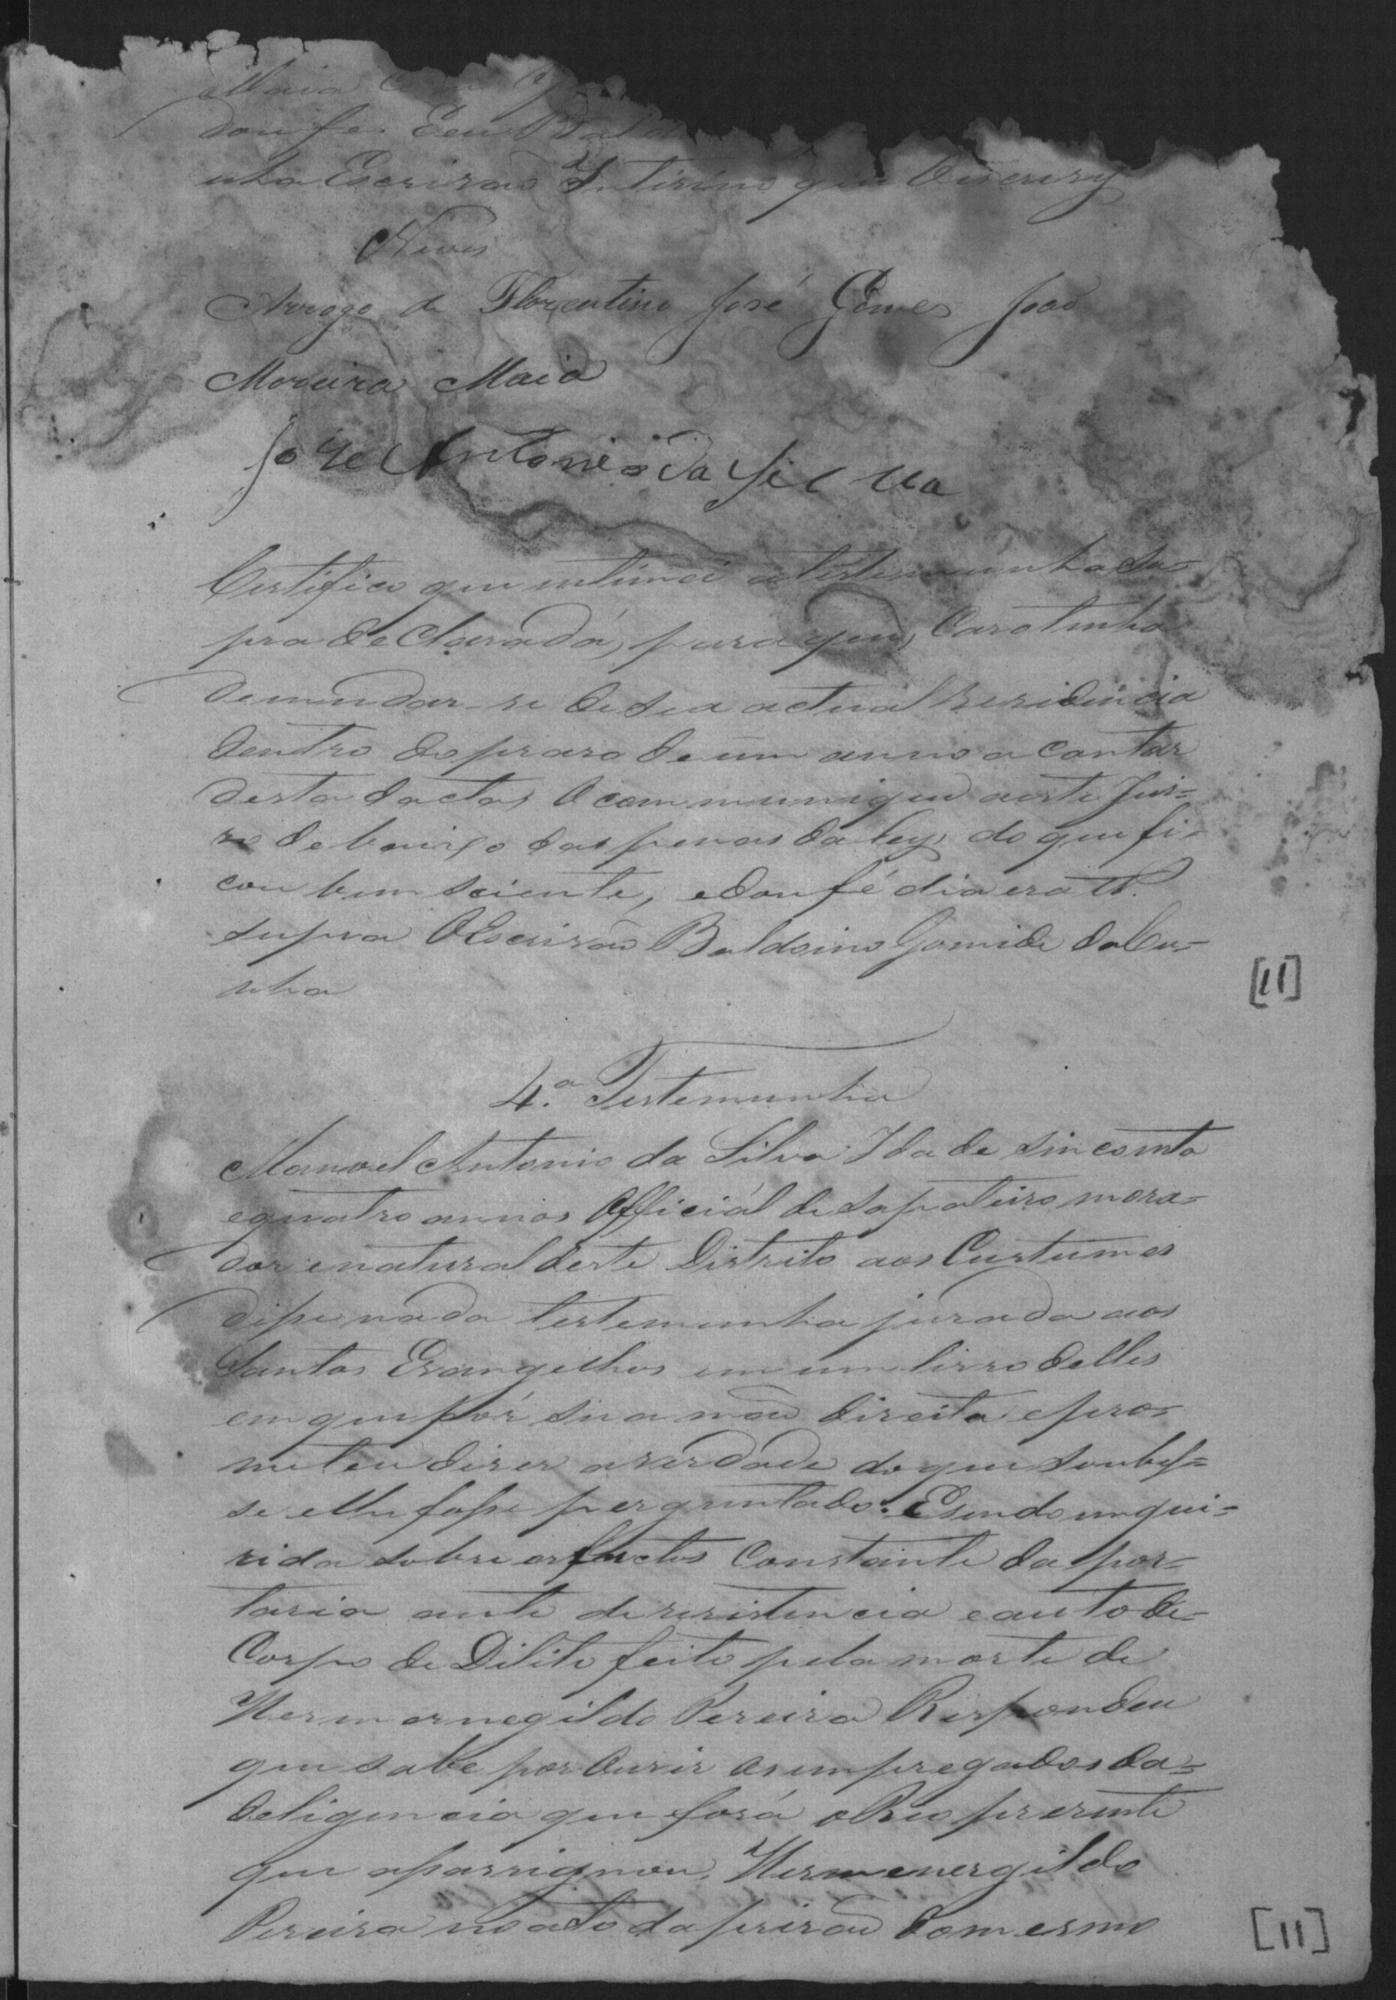 Maia
dou fé. Eeu Bald
nha Escrivão Intirino que Oescrevy
Neves
Arrogo de Florentino José Gomes João
Moreira Maia
Joze Antonio da Sil va
Certifico que intimei a testemunha Su-
pra declarada, para que,
demudar-se de sua actual Residencia
dentro do praso de um anno a contar
desta dacta, O communique a este Jui-
zo debaixo das penas da ley, do que fi-
cou bem sciente, e dou fé dia era ut
supra O Escrivão Baldoino Gomide da Cu-
nha
[11]
4.a Testemunha
Manoel Antonio da Silva Idade sincoenta
equatro annos Official de Sapateiro, mora-
dor enatural deste Distrito aos Custumes
dise nada testemunha jurada aos
Santos Evangelhos em um livro delles
em que pôs sua mão direita e pro-
meteu diser averdade do que soubes-
se elhe fosse perguntado: Esendo inqui-
rida sobre os factos Constante da por-
taria auto de resistencia eauto de
Corpo de Dilito feito pela morte de
Hermernegildo Pereira Respondeu
que sabe por Ouvir os empregados da
deligencia que forá o Reo prezente
que assassignou, Hermenergildo
Pereira no acto da prizão do mesmo
[11]